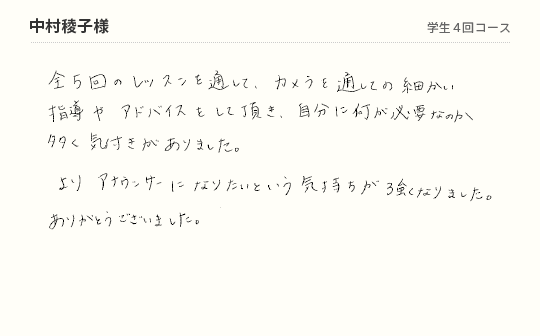 中村稜子様
学生４回コース
全5回のレッスンを通して、カメラを通しての細かい
指導やアドバイスをして頂き、自分に何が必要なのか
多く気付きがありました。
よりアナウンサーになりたいという気持ちが強くなりました。
ありがとうございました。